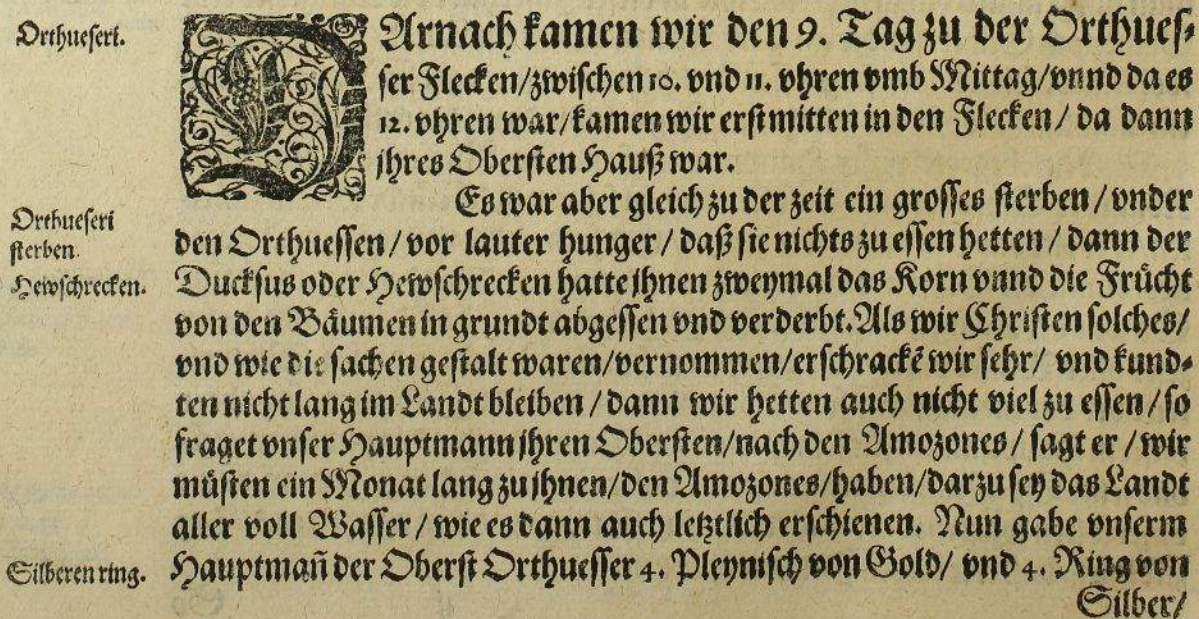 Orthueseri.
DArnach kamen wir den 9. Tag zu der Orthues-
ser Flecken/zwischen 10. vnd 11. vhren vmb Mittag/vnnd da es
12. vhren war/kamen wir erst mitten in den Flecken / da dann
jhres Obersten Hauß war.
Es war aber gleich zu der zeit ein grosses sterben / vnder
Orthueseri
sterben.
den Orthuessen / vor lauter hunger / daß sie nichts zu essen hetten / dann der
Hewschrecken.
Ducksus oder Hewschrecken hatte jhnen zweymal das Korn vnnd die Frücht
von den Bäumen in grundt abgessen vnd verderbt. Als wir Christen solches/
vnd wie die sachen gestalt waren/vernommen/erschrackē wir sehr/ vnd kund-
ten nicht lang im Landt bleiben / dann wir hetten auch nicht viel zu essen / so
fraget vnser Hauptmann jhren Obersten/nach den Amozones / sagt er / wir
müsten ein Monat lang zu jhnen/den Amozones/haben/darzu sey das Landt
aller voll Wasser / wie es dann auch letztlich erschienen. Nun gabe vnserm
Silberen ring.
Hauptmañ der Oberst Orthuesser 4. Pleynisch von Gold/ vnd 4. Ring von
Silber/